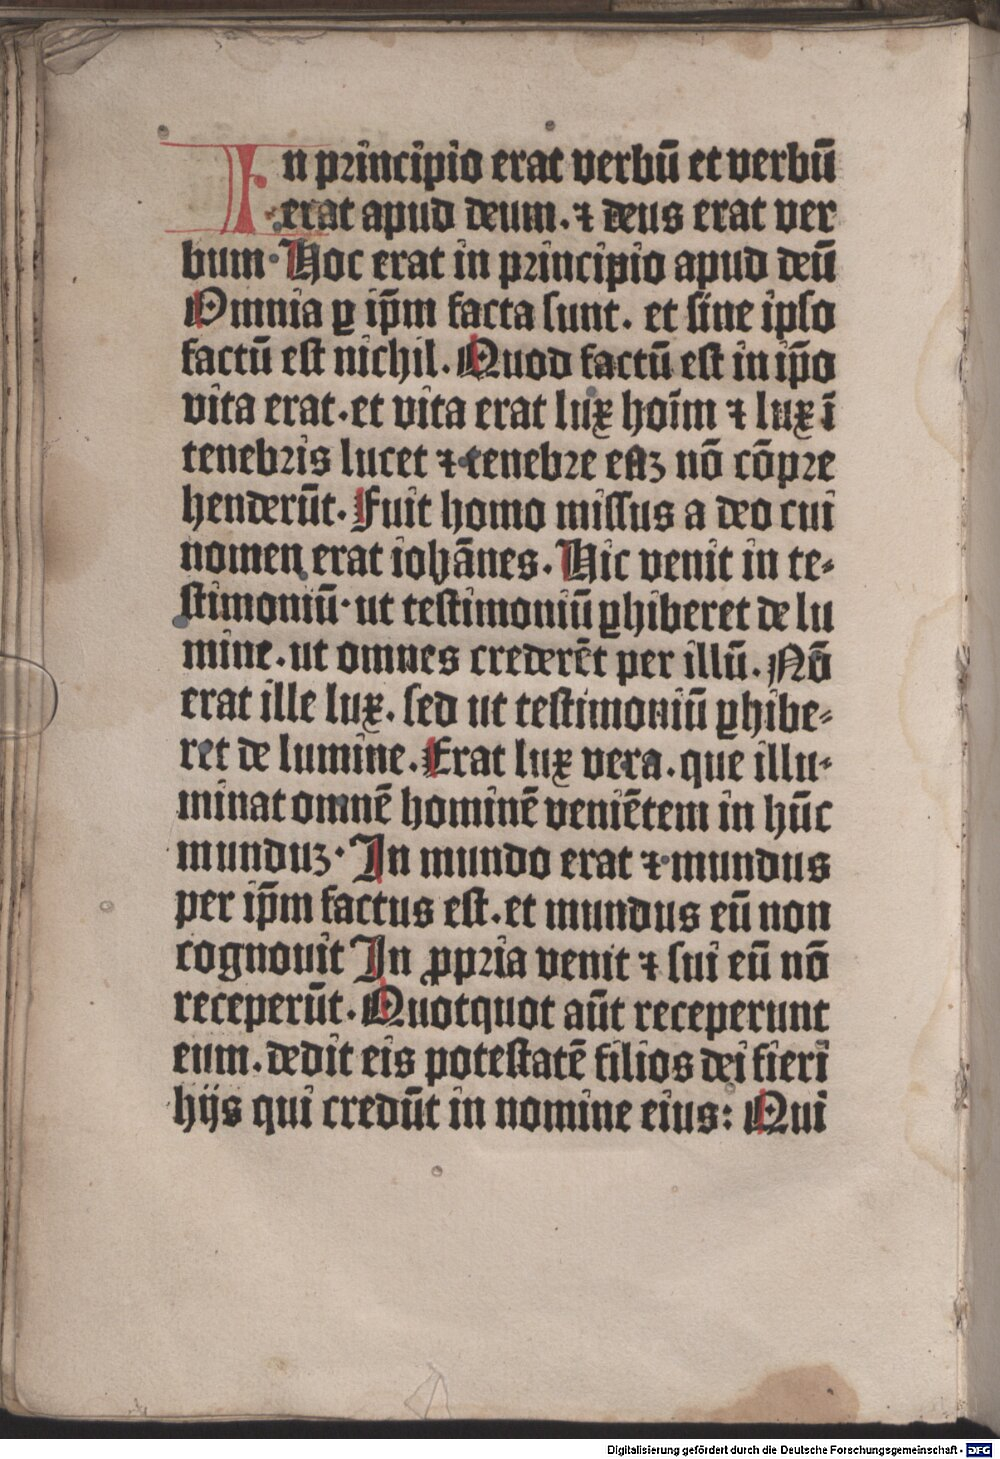 In principio erat verbū et verbū
erat apud deum. ⁊ deus erat ver
bum· Hoc erat in principio apud deū
Omnia ꝑ ip̄m facta sunt. et sine ipso
factū est nichil. Quod factū est in ip̄o
vita erat. et vita erat lux hoīm ⁊ lux ī
tenebris lucet ⁊ tenebre eaꝫ nō cōpre
henderūt. Fuit homo missus a deo cui
nomen erat iohānes. Hic venit in te-
stimoniū· ut testimoniū ꝑhiberet de lu
mine. ut omnes crederēt per illū. Nō
erat ille lux. sed ut testimoniū ꝑhibe-
ret de lumine. Erat lux vera. que illu-
minat omnē hominē veniētem in hūc
munduꝫ· In mundo erat ⁊ mundus
per ip̄m factus est. et mundus eū non
cognouit In ꝓpria venit ⁊ sui eū nō
receperūt. Quotquot aūt receperunt
eum. dedit eis potestatē filios dei fieri
hijs qui credūt in nomine eius: Qui
Digitalisierung gefördert durch die Deutsche Forschungsgemeinschaft - DFG